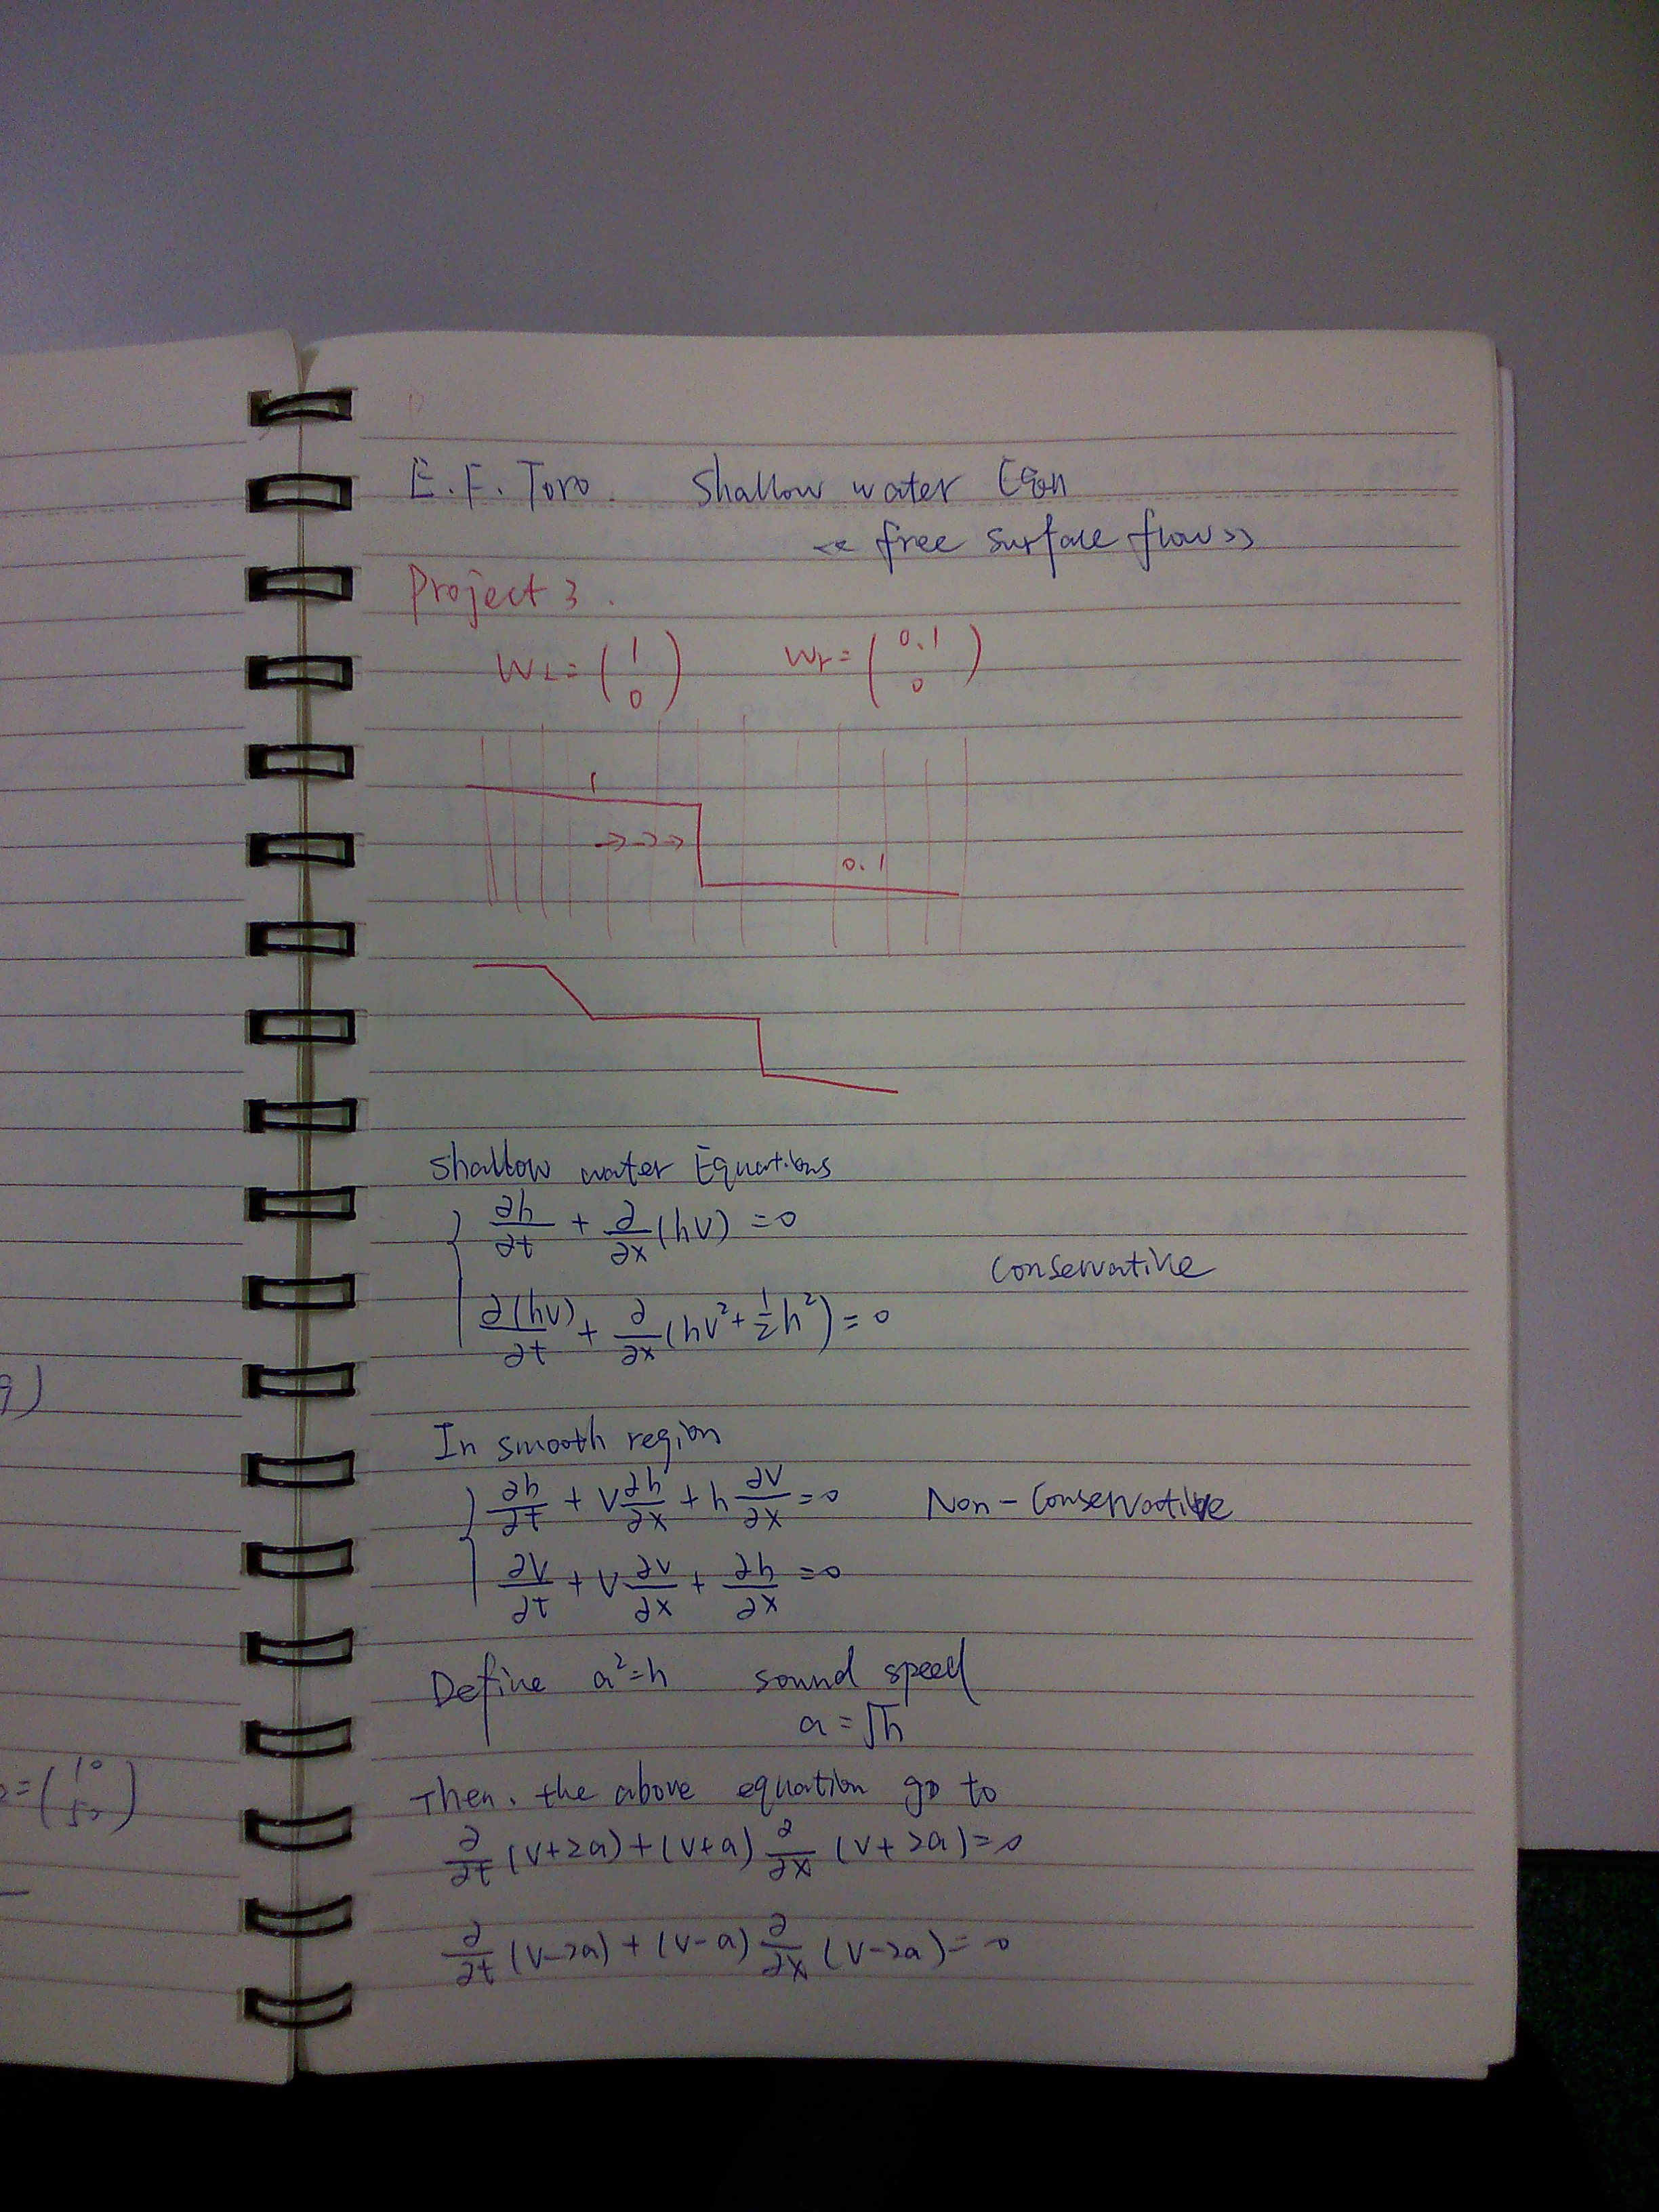 E.F. Toro. Shallow water Eqn
<< free surface flow >>
Project 3.
W_L = (1 0) W_r = (0.1 0)
1
0.1
Shallow water Equations
∂h/∂t + ∂/∂x (hv) = 0
Conservative
∂(hv)/∂t + ∂/∂x (hv² + 1/2 h²) = 0
In smooth region
∂h/∂t + v ∂h/∂x + h ∂v/∂x = 0 Non-Conservative
∂v/∂t + v ∂v/∂x + ∂h/∂x = 0
Define a² = h sound speed
a = √h
Then. the above equation go to
∂/∂t (v+2a) + (v+a) ∂/∂x (v+2a) = 0
∂/∂t (v-2a) + (v-a) ∂/∂x (v-2a) = 0